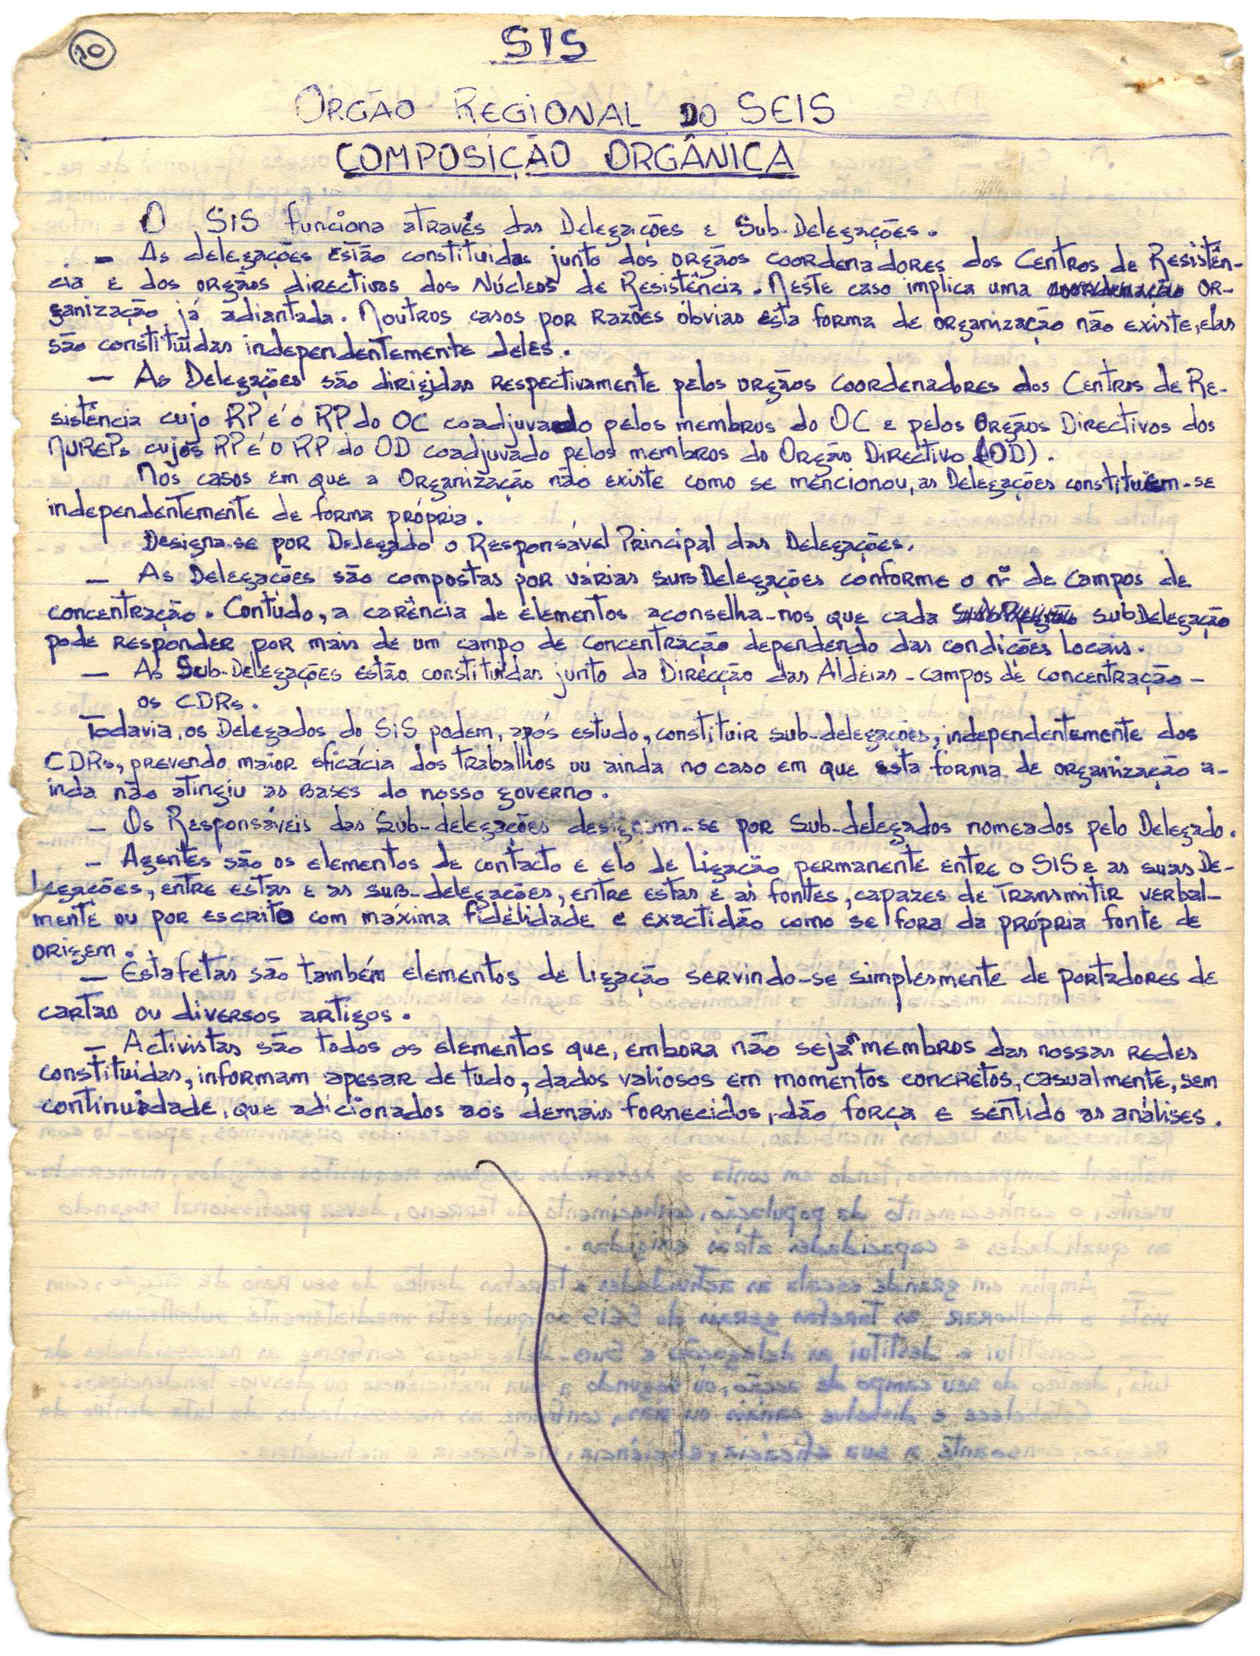 20
SIS
ORGÃO REGIONAL DO SEIS
COMPOSIÇÃO ORGÂNICA
O SIS funciona através das Delegações e Sub-Delegações.
- As delegações estão constituidas junto dos orgãos coordenadores dos Centros de Resistên-
cia e dos orgãos directivos dos Núcleos de Resistência. Neste caso implica uma coordenação or-
ganização já adiantada. Noutros casos por razões óbvias esta forma de organização não existe, elas
são constituídas independentemente deles.
- As Delegações são dirigidas respectivamente pelos orgãos coordenadores dos Centros de Re-
sistência cujo RP é o RP do OC coadjuvado pelos membros do OC e pelos Orgãos Directivos dos
NUREPs cujos RP é o RP do OD coadjuvado pelos membros do Orgão Directivo (OD).
Nos casos em que a Organização não existe como se mencionou, as Delegações constituem-se
independentemente de forma própria.
Designa-se por Delegado o Responsável Principal das Delegações.
- As Delegações são compostas por várias subDelegações conforme o nº de campos de
concentração. Contudo, a carência de elementos aconselha-nos que cada subDelegação
pode responder por mais de um campo de concentração dependendo das condições locais.
- As Sub-Delegações estão constituídas junto da Direcção das Aldeias - campos de concentração -
os CDRs.
Todavia, os Delegados do SIS podem, após estudo, constituir sub-delegações, independentemente dos
CDRs, prevendo maior eficácia dos trabalhos ou ainda no caso em que esta forma de organização a-
inda não atingiu as bases do nosso governo.
- Os Responsáveis das Sub-delegações designam-se por Sub-delegados nomeados pelo Delegado.
- Agentes são os elementos de contacto e elo de ligação permanente entre o SIS e as suas De-
legações, entre estas e as sub-delegações, entre estas e as fontes, capazes de transmitir verbal-
mente ou por escrito com máxima fidelidade e exactidão como se fora da própria fonte de
origem.
- Estafetas são também elementos de ligação servindo-se simplesmente de portadores de
cartas ou diversos artigos.
- Activistas são todos os elementos que, embora não sejam membros das nossas redes
constituidas, informam apesar de tudo, dados valiosos em momentos concretos, casualmente, sem
continuidade, que adicionados aos demais fornecidos, dão força e sentido as análises.